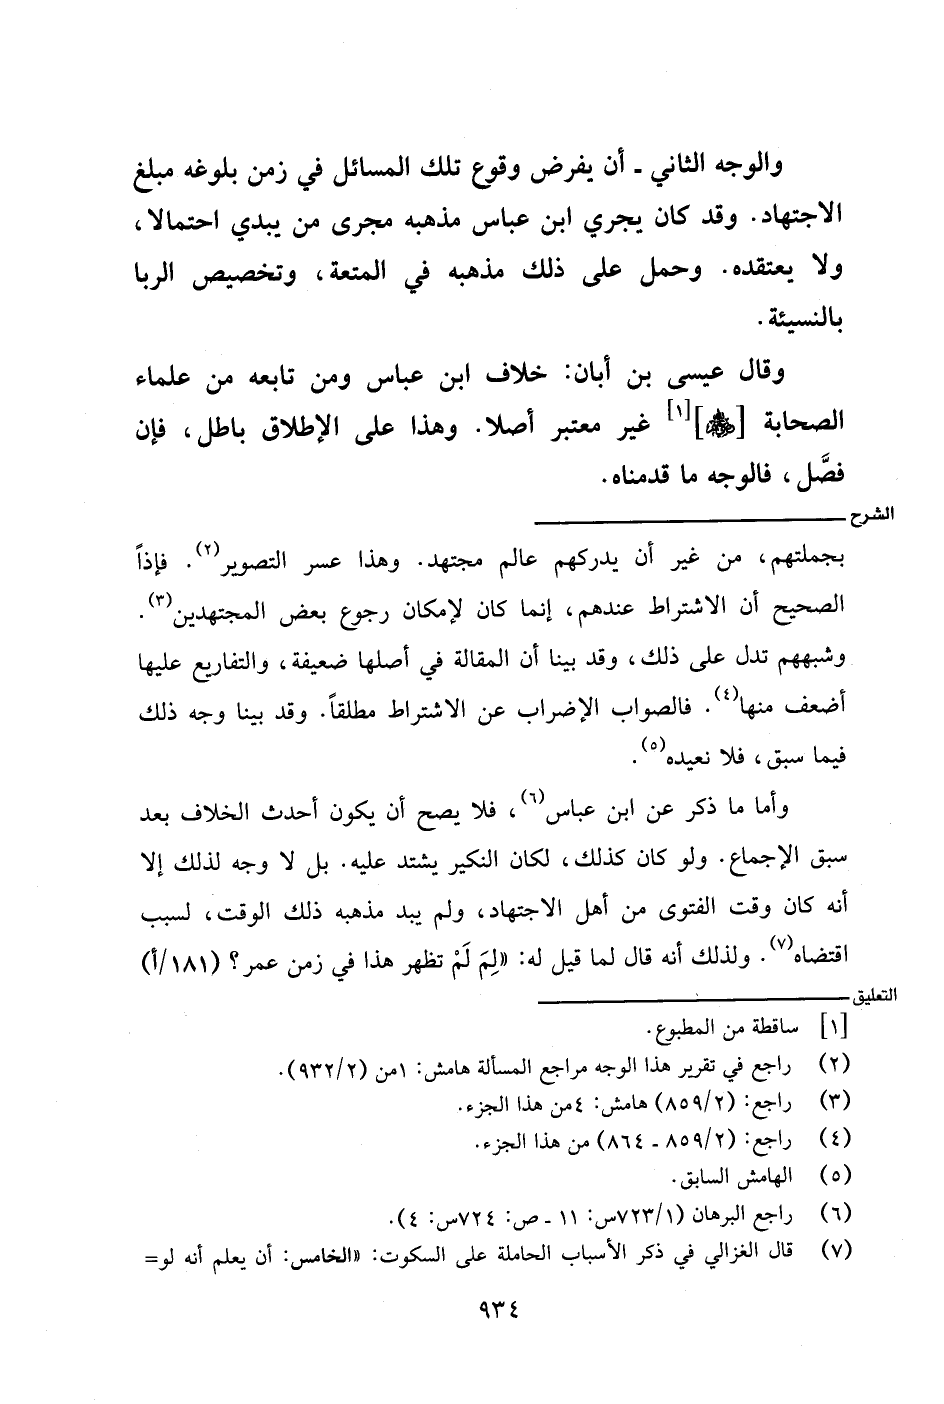 والوجه الثاني ـ أن يفرض وقوع تلك المسائل في زمن بلوغه مبلغ
الاجتهاد. وقد كان يجري ابن عباس مذهبه مجرى من يبدي احتمالا،
ولا يعتقده. وحمل على ذلك مذهبه في المتعة، وتخصيص الربا
بالنسيئة.
وقال عيسى بن أبان: خلاف ابن عباس ومن تابعه من علماء
الصحابة [﵃][١] غير معتبر أصلا. وهذا على الإطلاق باطل، فإن
فصَّل، فالوجه ما قدمناه.
الشرح
بجملتهم، من غير أن يدركهم عالم مجتهد. وهذا عسر التصوير(٢). فإذاً
الصحيح أن الاشتراط عندهم، إنما كان لإمكان رجوع بعض المجتهدين(٣).
وشبههم تدل على ذلك، وقد بينا أن المقالة في أصلها ضعيفة، والتفاريع عليها
أضعف منها(٤). فالصواب الإضراب عن الاشتراط مطلقاً. وقد بينا وجه ذلك
فيما سبق، فلا نعيده(٥).
وأما ما ذكر عن ابن عباس(٦)، فلا يصح أن يكون أحدث الخلاف بعد
سبق الإجماع. ولو كان كذلك، لكان النكير يشتد عليه. بل لا وجه لذلك إلا
أنه كان وقت الفتوى من أهل الاجتهاد، ولم يبد مذهبه ذلك الوقت، لسبب
اقتضاه(٧). ولذلك أنه قال لما قيل له: «لِمَ لَمْ تظهر هذا في زمن عمر؟ (١٨١/أ)
التعليق
[١] ساقطة من المطبوع.
(٢) راجع في تقرير هذا الوجه مراجع المسألة هامش: ١من (٩٣٢/٢).
(٣) راجع: (٨٥٩/٢) هامش: ٤من هذا الجزء.
(٤) راجع: (٨٥٩/٢ ـ ٨٦٤) من هذا الجزء.
(٥) الهامش السابق.
(٦) راجع البرهان (٧٢٣/١س: ١١ ـ ص: ٧٢٤س: ٤).
(٧) قال الغزالي في ذكر الأسباب الحاملة على السكوت: «الخامس: أن يعلم أنه لو=
٩٣٤